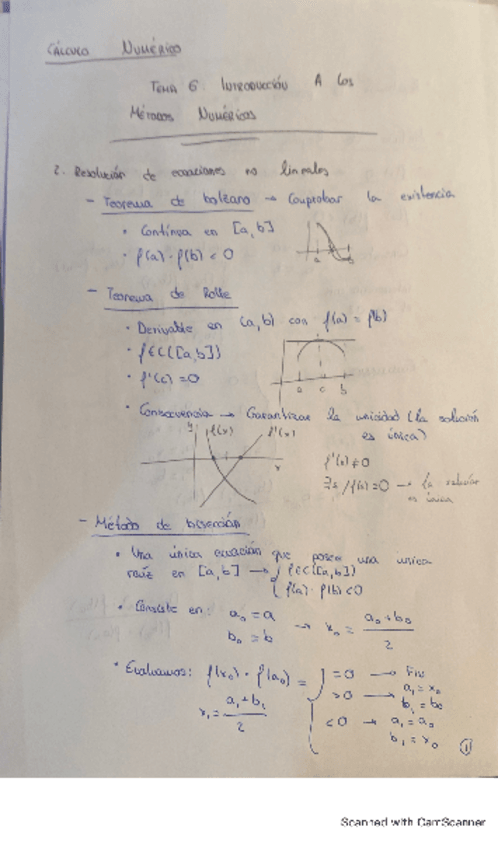 CÁLCULO NUMÉRICO
TEMA 6. INTRODUCCIÓN A LOS
MÉTODOS NUMÉRICOS
2. Resolución de ecuaciones no lineales
- Teorema de bolzano → Comprobar la existencia
• Contínua en [a, b]
• f(a) · f(b) < 0
a b
- Teorema de Rolle
• Derivable en (a, b) con f(a) = f(b)
• f ∈ C([a, b])
• f'(c) = 0
a c b
• Consecuencia → Garantizar la unicidad (la solución
es única)
y f(x) f'(x)
x
f'(x) ≠ 0
f(a) = 0 → la solución
es única
- Método de bisección
• Una única ecuación que posee una unica
raíz en [a, b] → { f ∈ C([a, b])
f(a) · f(b) < 0
• Consiste en: a₀ = a
b₀ = b → x₀ = (a₀ + b₀) / 2
• Evaluamos: f(x₀) · f(a₀) = { = 0 → Fin
> 0 → a₁ = x₀
b₁ = b₀
x₁ = (a₁ + b₁) / 2
< 0 → a₁ = a₀
b₁ = x₀
1
Scanned with CamScanner